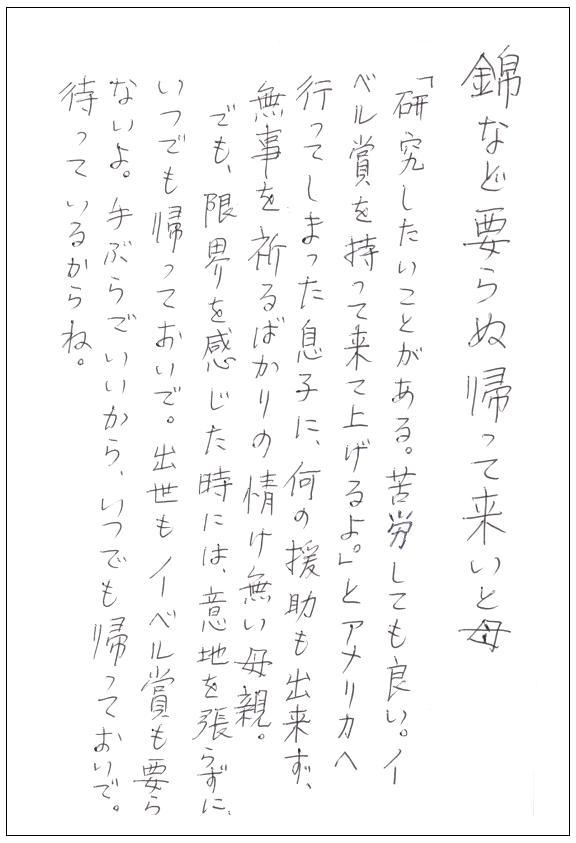 錦など要らぬ帰って来いと母
「研究したいことがある。苦労しても良い。イ
ベル賞を持って来て上げるよ。」とアメリカへ
行ってしまった息子に、何の援助も出来ず、
無事を祈るばかりの情け無い母親。
でも、限界を感じた時には、意地を張らずに、
いつでも帰っておいで。出世もイーベル賞も要ら
ないよ。手ぶらでいいから、いつでも帰っておいで。
待っているからね。